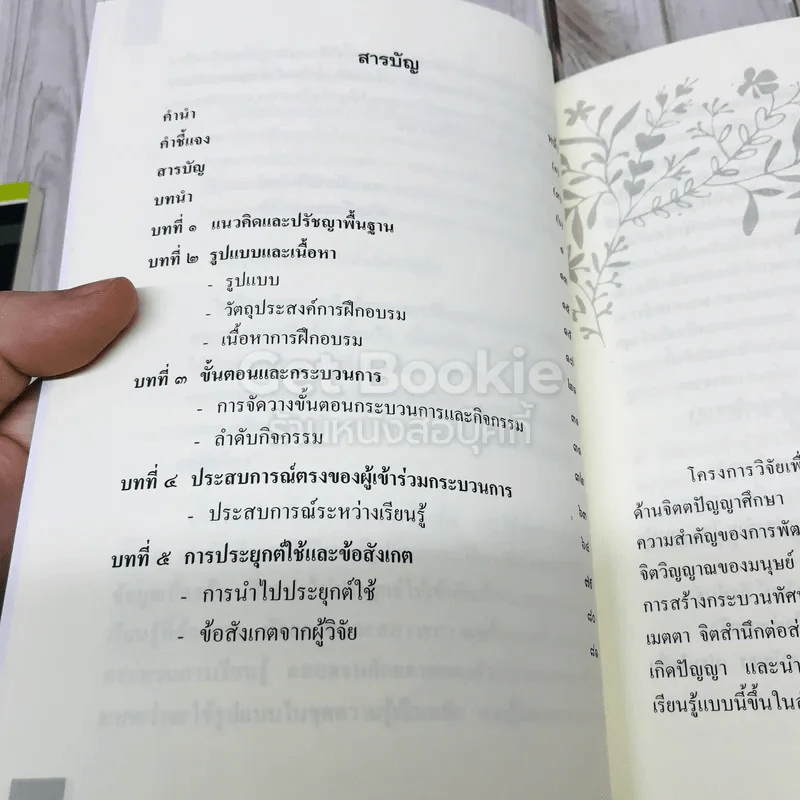 สารบัญ
หน้า
คำนำ
คำชี้แจง
สารบัญ
บทนำ
บทที่ ๑ แนวคิดและปรัชญาพื้นฐาน
บทที่ ๒ รูปแบบและเนื้อหา
- รูปแบบ
- วัตถุประสงค์การฝึกอบรม
- เนื้อหาการฝึกอบรม
บทที่ ๓ ขั้นตอนและกระบวนการ
- การจัดวางขั้นตอนกระบวนการและกิจกรรม
- ลำดับกิจกรรม
บทที่ ๔ ประสบการณ์ตรงของผู้เข้าร่วมกระบวนการ
- ประสบการณ์ระหว่างเรียนรู้
บทที่ ๕ การประยุกต์ใช้และข้อสังเกต
- การนำไปประยุกต์ใช้
- ข้อสังเกตจากผู้วิจัย
Get Bookie
ร้านหนังสือบุ๊คกี้
โครงการวิจัยเพื่
ด้านจิตตปัญญาศึกษา
ความสำคัญของการพัฒ
จิตวิญญาณของมนุษย์
การสร้างกระบวนทัศน
เมตตา จิตสำนึกต่อส่
เกิดปัญญา และนำ
เรียนรู้แบบนี้ขึ้นในสั